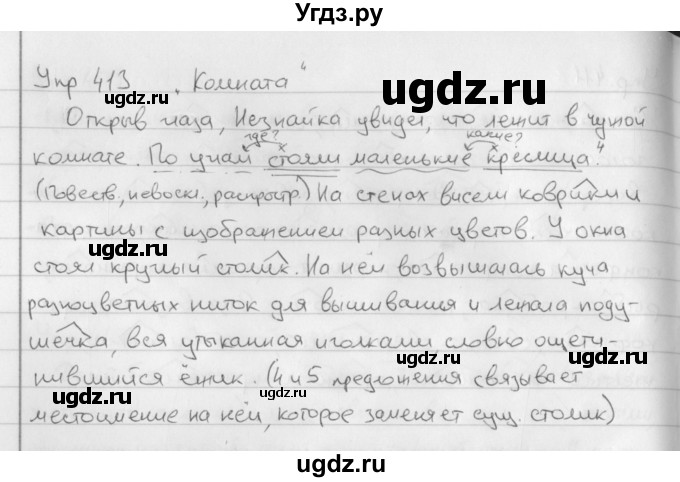 Угдз.ру
Упр 413 „Комната"
ugdz.ru
ugdz.ru
Открыв глаза, Незнайка увидел, что лежит в чужой
где? какие?
комнате. По углам стояли маленькие креслица.⁴
(Повеств., невоскл., распростр.) На стенах висели коврики и
ugdz.ru
картины с изображением разных цветов. У окна
ugdz.ru
стоял круглый столик. На нём возвышалась куча
ugdz.ru
разноцветных ниток для вышивания и лежала поду-
шечка, вся утыканная иголками словно ощети-
ugdz.ru
ugdz.ru
нившийся ёжик. (4 и 5 предложения связывает
местоимение на нём, которое заменяет сущ. столик)
ugdz.ru
ugdz.ru